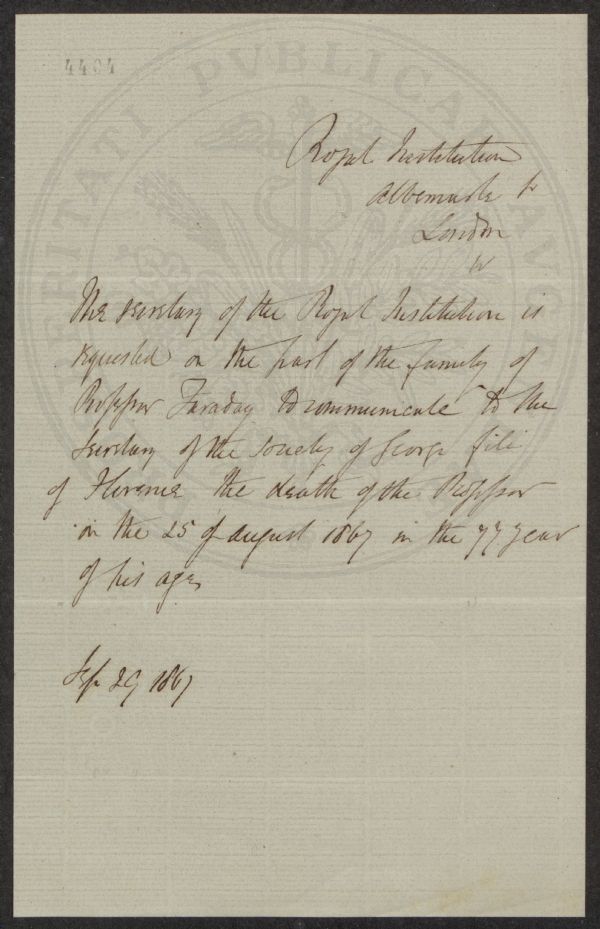 4404
Royal Institution
Albemarle St
London
W
The Secretary of the Royal Institution is
requested on the part of the family of
Professor Faraday to communicate to the
Secretary of the Society of George fili
of Florence the death of the Professor
on the 25 of August 1867 in the 77 year
of his age
Sep 29 1867
PUBLICAE